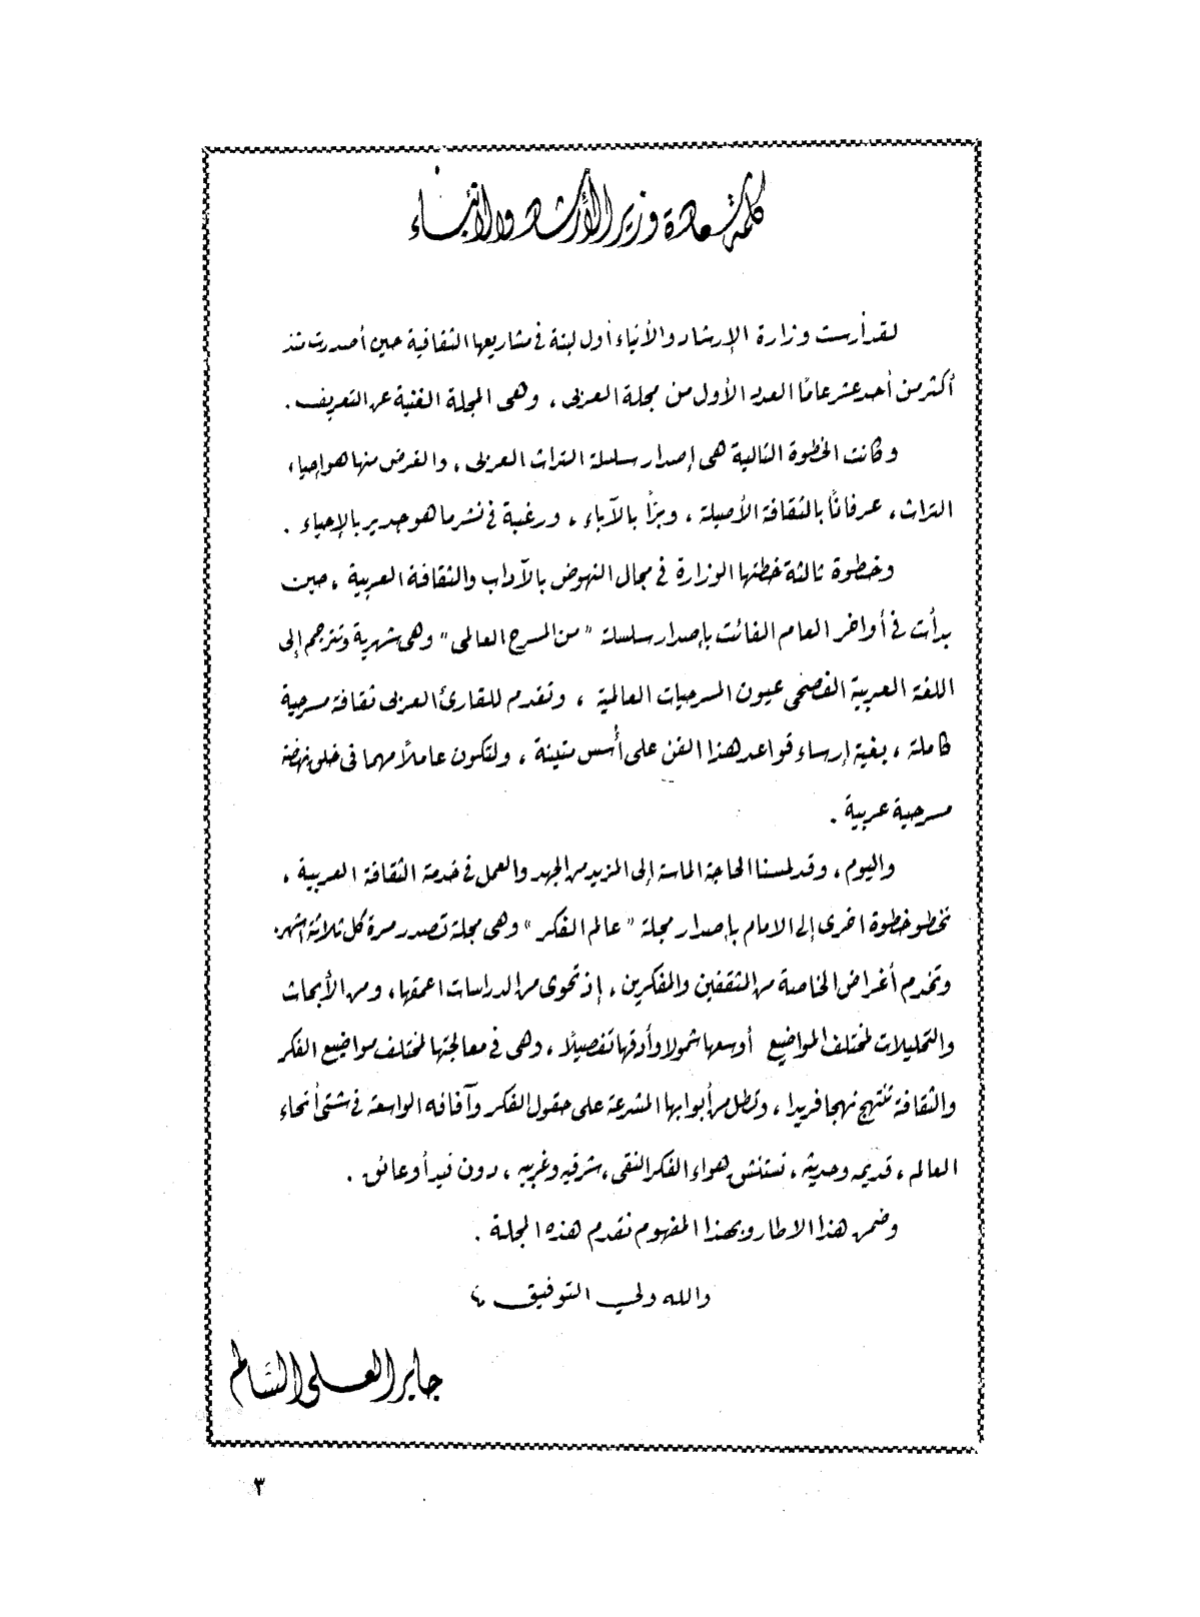 كلمة سعادة وزير الأرشاد والأنباء
لقد أرست وزارة الإرشاد والأنباء أول لبنة في مشاريعها الثقافية حين أصدرت منذ
أكثر من أحد عشر عامًا العدد الأول من مجلة العربى ، وهى المجلة الغنية عن التعريف .
وكانت الخطوة التالية هى إصدار سلسلة التراث العربى ، والغرض منها هو إحياء
التراث ، عرفانًا بالثقافة الأصيلة ، وبرًّا بالآباء ، ورغبة في نشر ما هو جدير بالإحياء .
وخطوة ثالثة خطتها الوزارة في مجال النهوض بالآداب والثقافة العربية ، حين
بدأت في أواخر العام الفائت بإصدار سلسلة "من المسرح العالمى" وهى شهرية وتترجم إلى
اللغة العربية الفصحى عيون المسرحيات العالمية ، وتقدم للقارئ العربى ثقافة مسرحية
كاملة ، بغية إرساء قواعد هذا الفن على أُسس متينة ، ولتكون عاملاً مهما فى خلق نهضة
مسرحية عربية .
واليوم ، وقد لمسنا الحاجة الماسة إلى المزيد من الجهد والعمل في خدمة الثقافة العربية ،
نخطو خطوة اخرى إلى الامام بإصدار مجلة "عالم الفكر" وهى مجلة تصدر مرة كل ثلاثة اشهر
وتخدم أغراض الخاصة من المثقفين والمفكرين ، إذ تحوى من الدراسات اعمقها ، ومن الأبحاث
والتحليلات لمختلف المواضيع أوسعها شمولا وأدقها تفصيلاً ، وهى في معالجتها لمختلف مواضيع الفكر
والثقافة تنتهج نهجا فريدا ، وتطل من أبوابها المشرعة على حقول الفكر وآفاقه الواسعة في شتى أنحاء
العالم ، قديمه وحديثه ، تستنشق هواء الفكر النقى ، شرقيه وغربيه ، دون قيد أو عائق .
وضمن هذا الاطار وبهذا المفهوم نقدم هذه المجلة .
والله ولي التوفيق
جابر العلى السالم
٣